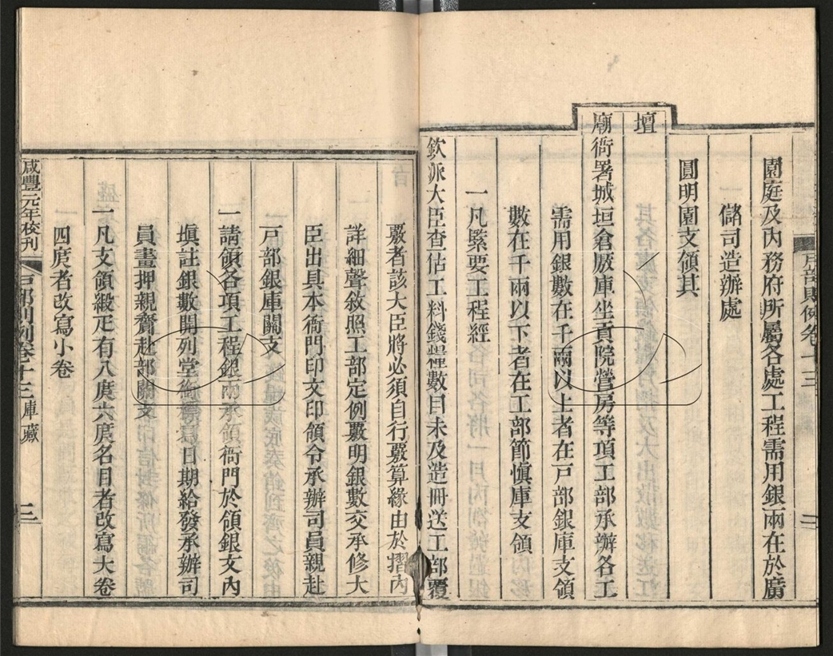 戶部則例卷十三
園庭及內務府所屬各處工程需用銀兩在於廣
儲司造辦處
圓明園支領其
壇
廟衙署城垣倉廒庫坐貢院營房等項工部承辦各工
需用銀數在千兩以上者在戶部銀庫支領
數在千兩以下者在工部節慎庫支領
一凡緊要工程經
欽派大臣查估工料錢糧數目未及造冊送工部覆
覈者該大臣將必須自行覈算緣由於摺內
詳細聲敘照工部定例覈明銀數交承修大
臣出具本衙門印文印領令承辦司員親赴
戶部銀庫關支
一請領各項工程銀兩承領衙門於領銀文內
塡註銀數開列堂銜日期給發承辦司
員畫押親齎赴部關支
一凡支領緞疋有八庹六庹名目者改寫大卷
四庹者改寫小卷
咸豐元年校刊
戶部則例卷十三庫藏
三